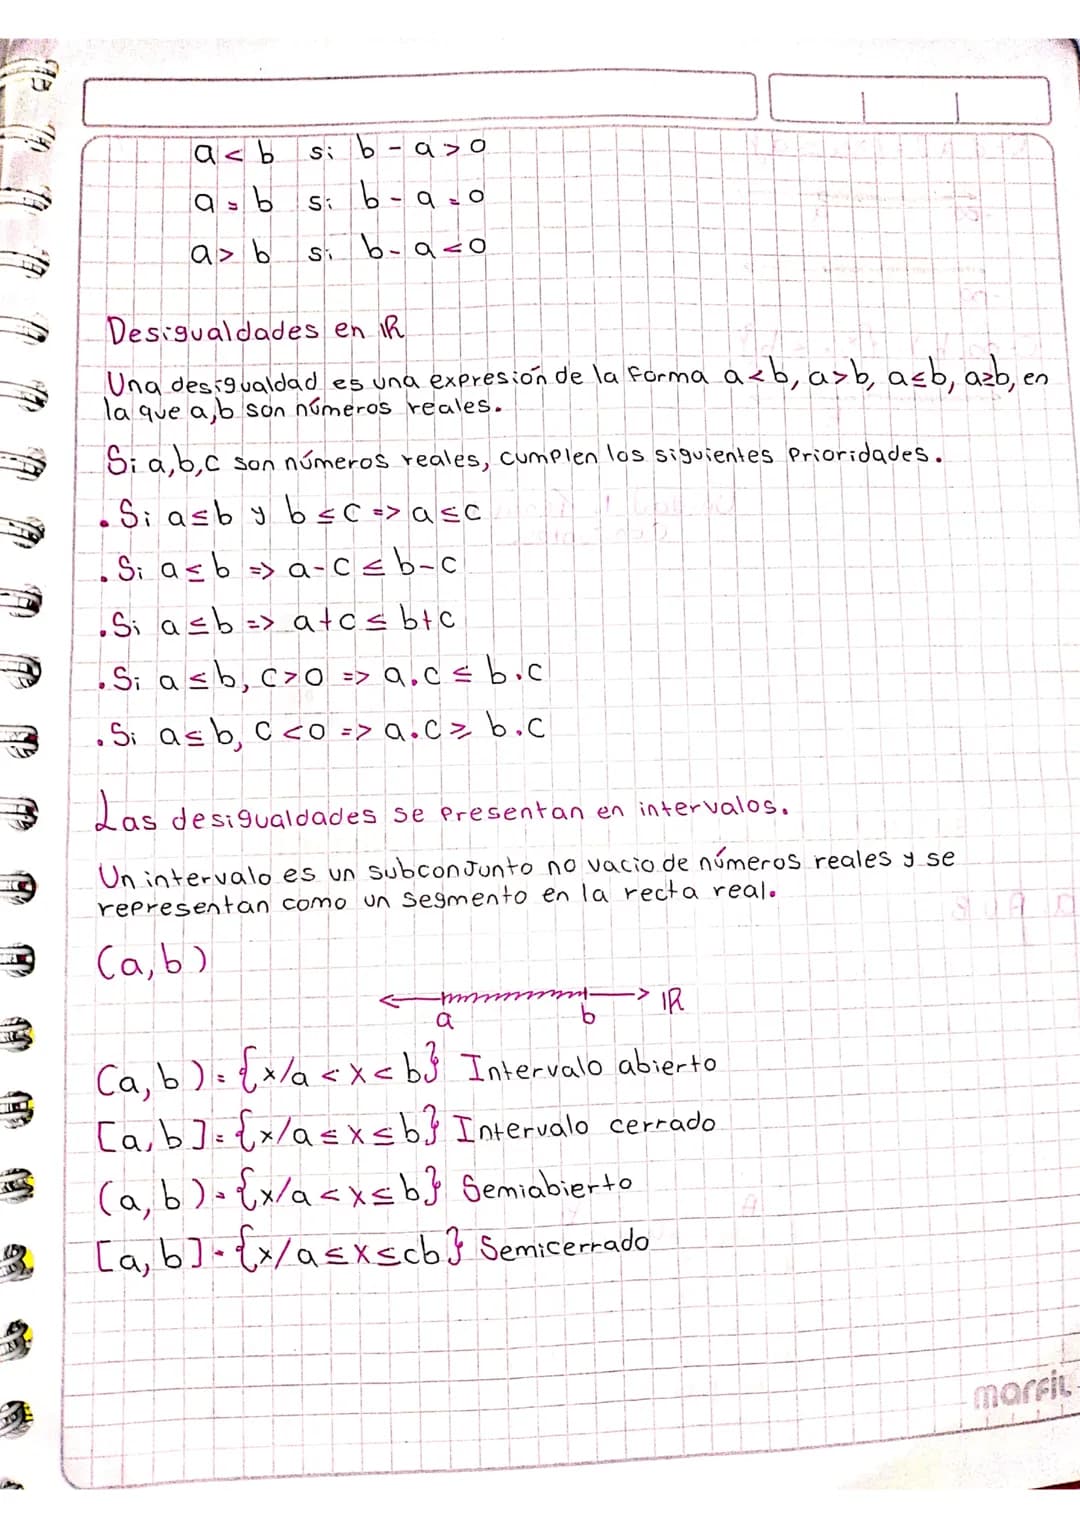 a < b si b - a > 0
a = b si b - a = 0
a > b si b - a < 0
Desigualdades en ℝ
Una desigualdad es una expresión de la forma a < b, a > b, a ≤ b, a ≥ b, en
la que a,b son números reales.
Si a,b,c son números reales, cumplen los siguientes Prioridades.
. Si a ≤ b y b ≤ c => a ≤ c
. Si a ≤ b => a - c ≤ b - c
. Si a ≤ b => a + c ≤ b + c
. Si a ≤ b, c > 0 => a . c ≤ b . c
. Si a ≤ b, c < 0 => a . c ≥ b . c
Las desigualdades se Presentan en intervalos.
Un intervalo es un subconjunto no vacio de números reales y se
representan como un segmento en la recta real.
(a,b)
ℝ
a b
(a,b) = {x/a < x < b} Intervalo abierto
[a,b] = {x/a ≤ x ≤ b} Intervalo cerrado
(a,b) = {x/a < x ≤ b} Semiabierto
[a,b] = {x/a ≤ x ≤ cb} Semicerrado
marfil